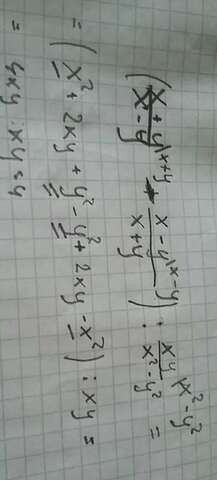 (x+y/x-y |x+y - x-y/x+y |x-y) : xy/x²-y² |x²-y² =
= (x² + 2xy + y² - y² + 2xy - x²) : xy =
= 4xy : xy = 4